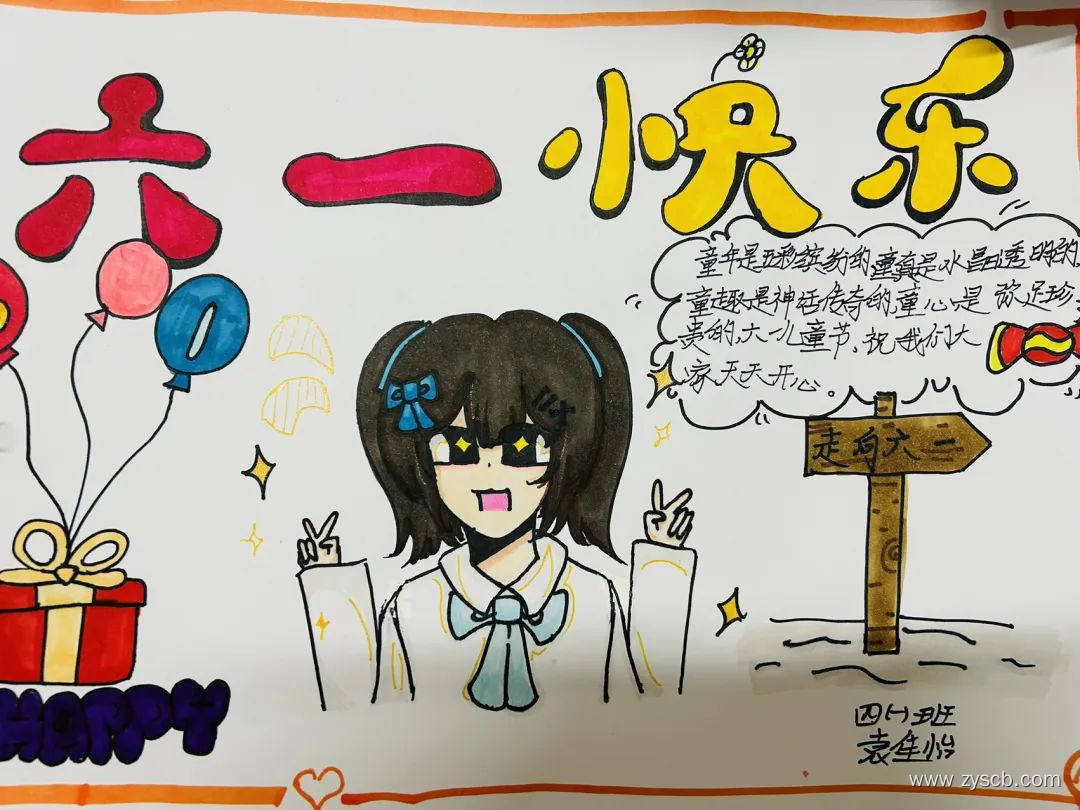 六一快乐
童年是五彩缤纷的,童真是水晶透明的,
童趣是神话传奇的,童心是弥足珍
贵的,六一儿童节,祝我们大
家天天开心。
走向六一
HAPPY
四(一)班
袁佳怡
www.zyscb.com